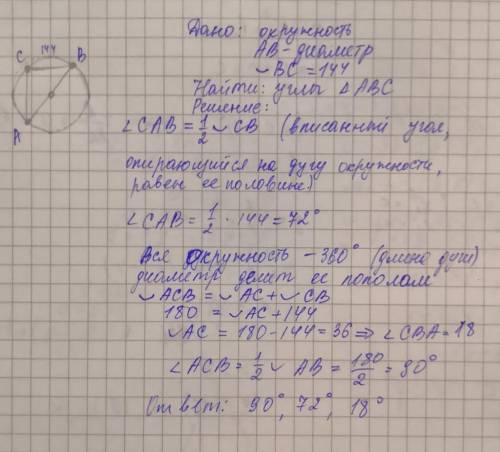 Дано: окружность
AB - диаметр
◡BC = 144
Найти: углы △ABC
Решение:
C 144 B
A
∠CAB = 1/2 ◡CB (вписанный угол,
опирающийся на дугу окружности,
равен ее половине)
∠CAB = 1/2 · 144 = 72°
Вся окружность - 360° (длина дуги)
диаметр делит ее пополам
◡ACB = ◡AC + ◡CB
180 = ◡AC + 144
◡AC = 180 - 144 = 36 ⇒ ∠CBA = 18
∠ACB = 1/2 ◡AB = 180/2 = 90°
Ответ: 90°, 72°, 18°